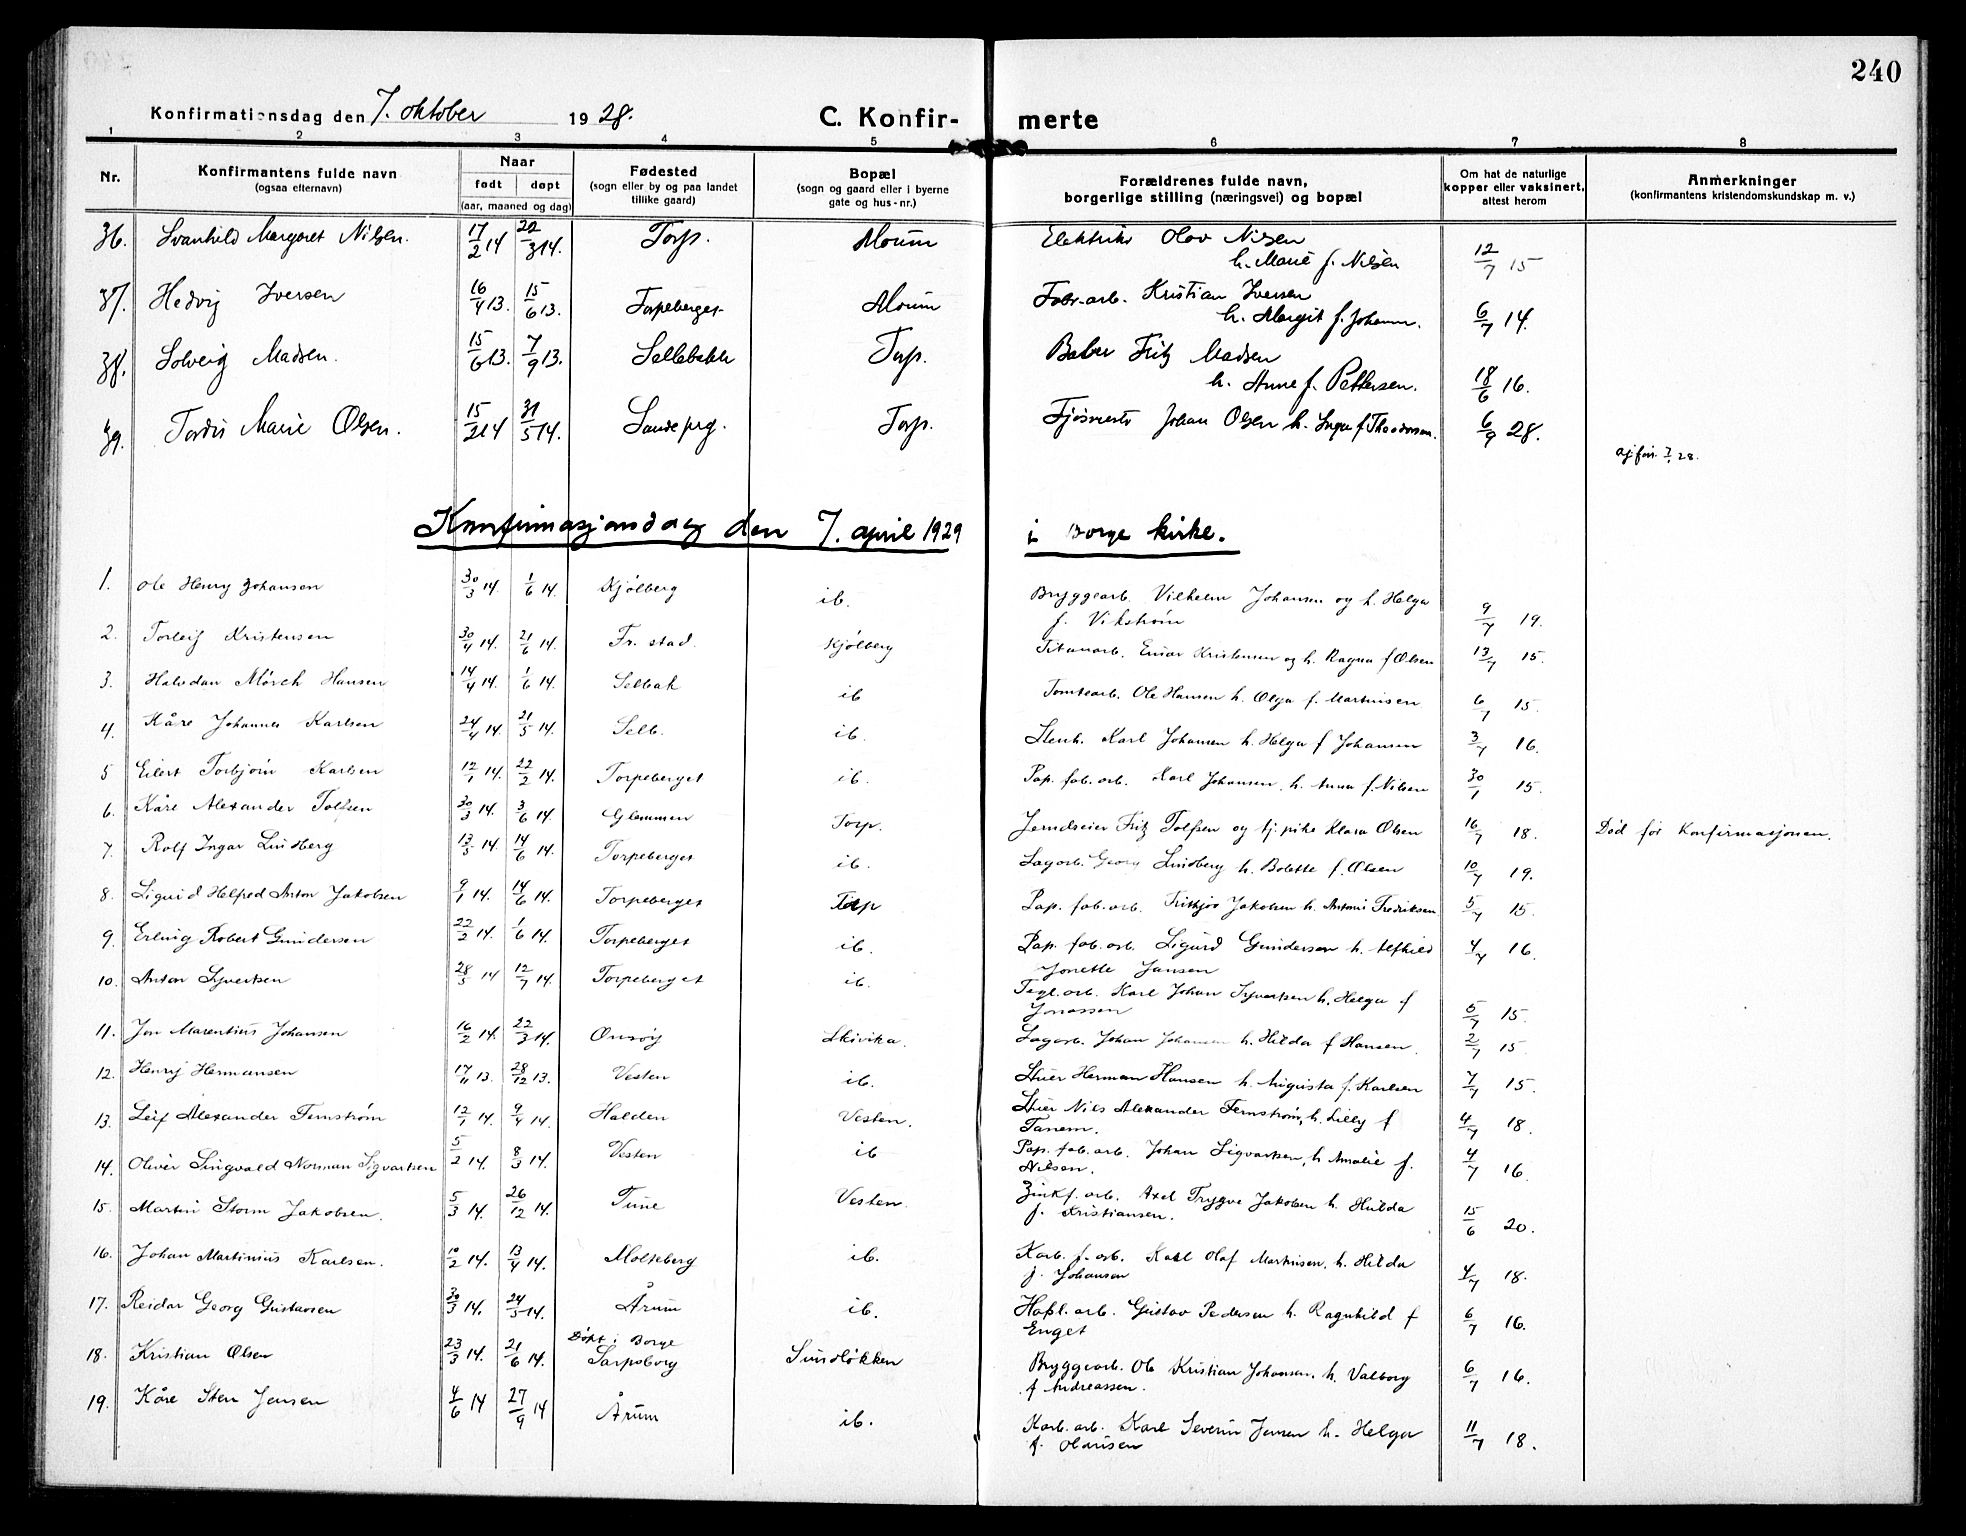 240
Konfirmationsdag den 7. oktober 1928. C. Konfir- merte
1 2 3 4 5 6 7 8
Nr. Konfirmantens fulde navn (ogsaa efternavn) Naar født døpt (aar, maaned og dag) Fødested (sogn eller by og paa landet tillike gaard) Bopæl (sogn og gaard eller i byerne gate og hus-nr.) Forældrenes fulde navn, borgerlige stilling (næringsvei) og bopæl Om hat de naturlige kopper eller vaksinert, attest herom Anmerkninger (konfirmantens kristendomskundskap m. v.)
36. Svanhild Margaret Nilsen. 17/2 14 22/3 14. Torp. Moum Elektriker Olav Nilsen
h. Marie f. Nilsen 12/7 15
37. Hedvig Iversen 16/4 13. 15/6 13. Torpeberget Moum Fabr-arb. Kristian Iversen
h. Margit f. Johansen. 6/7 14.
38. Solveig Madsen. 15/6 13. 7/9 13. Sellebakk Torp. Baker Fritz Madsen
h. Anne f. Pettersen. 18/6 16.
39. Tordis Marie Olsen. 15/2 14 31/5 14. Torp. Johan Olsen h. Inga f Theodorsen. 6/9 28.
Konfirmasjonsdag den 7. april 1929 i Borge kirke.
1. Ole Henry Johansen 30/3 14. 1/6 14. Kjølberg ib. Bryggearb. Vilhelm Johansen og h. Helga
f. Vikstrøm 9/7 19.
2. Torleif Kristensen 30/4 14. 21/6 14. Fr. stad. Kjølberg Titanarb. Einar Kristensen og h. Ragna f Olsen 13/7 15.
3. Halvdan Mørch Hansen 14/4 14. 1/6 14. Selbak ib Tomtearb. Ole Hansen h. Olga f. Martinsen 6/7 15.
4. Kåre Johannes Karlsen 24/4 14. 21/5 14. Selb. ib. Stenh. Karl Johansen h. Helga f Johansen 3/7 16.
5 Eilert Torbjørn Karlsen 12/1 14. 22/2 14. Torpeberget ib. Pap. fab. arb. Karl Johansen, h. Anna f. Nilsen 30/1 15.
6. Kåre Alexander Tolfsen 30/3 14. 3/6 14. Glemmen Torp. Jerndreier Fritz Tolfsen og tj. pike Klara Olsen 16/7 18. Død før Konfirmasjonen.
7. Rolf Ingar Lindberg 13/5 14. 14/6 14. Torpeberget ib. Sagarb. Georg Lindberg h. Bolette f. Olsen 10/7 19.
8. Sigurd Helfred Anton Jakobsen 9/1 14. 14/6 14. Torpeberget Torp Pap. fab. arb. Fritjof Jakobsen h. Antoni Fredriksen 5/7 15.
9. Erling Robert Gundersen 22/2 14. 1/6 14. Torpeberget ib. Pap. fab. arb. Sigurd Gundersen h. Alfhild
Jonette Jansen 4/7 16.
10. Anton Syvertsen 28/5 14 12/7 14. Torpeberget ib. Tegl. arb. Karl Johan Syvertsen h. Helga f
Jonassen 5/7 15.
11. Jon Marentius Johansen 16/2 14. 22/3 14. Onsøy Skivika. Sagarb. Johan Johansen h. Hilda f Hansen. 2/7 15.
12. Henry Hermansen 17/11 13. 28/12 13. Vesten ib. Stuer Herman Hansen h. Augusta f. Karlsen 7/7 15.
13. Leif Alexander Fernstrøm 12/1 14. 9/4 14. Halden Vesten. Stuer Nils Alexander Fernstrøm, h. Lilly f
Tanem. 4/7 18.
14. Oliver Singvald Norman Sigvartsen 5/2 14. 8/3 14. Vesten ib Pap. fab. arb. Johan Sigvartsen, h Amalie f.
Nilsen. 4/7 16.
15. Martin Storm Jakobsen. 5/3 14. 26/12 14. Tune Vesten. Zinkf. arb. Axel Trygve Jakobsen h. Hulda
f. Kristiansen. 15/6 20.
16. Johan Martinius Karlsen. 10/2 14. 13/4 14. Molteberg ib. Karb. f. arb. Karl Olaf Martinsen, h. Hilda
f. Johansen 4/7 18.
17. Reidar Georg Gustavsen 30/3 14. 24/5 14. Årum ib. Høvl. arb. Gustav Pedersen h. Ragnhild f
Enget 6/7 16.
Døpt i Borge
18. Kristian Olsen 23/3 14. 21/6 14. Sarpsborg Sundløkken Bryggearb. Ole Kristian Johansen, h. Valborg
f Andreassen. 6/7 16.
19. Kåre Sten Jensen 4/6 14 27/9 14 Årum ib. Karb. arb. Karl Severin Jensen h. Helga
f. Olausen 11/7 18.